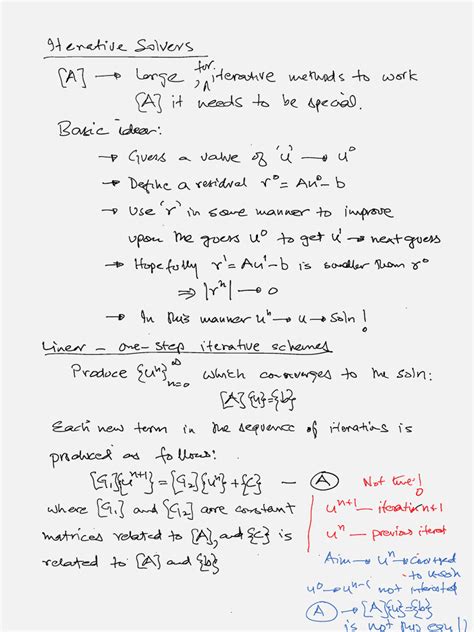 Iterative Solvers
[A] → large, for iterative methods to work
[A] it needs to be special.
Basic idea:
→ Guess a value of 'u' → u⁰
→ Define a residual r⁰ = Au⁰ - b
→ Use 'r' in some manner to improve
upon the guess u⁰ to get u¹ → next guess
→ Hopefully r¹ = Au¹ - b is smaller than r⁰
⇒ |rⁿ| → 0
→ In this manner uⁿ → u → soln!
Linear - one-step iterative schemes
Produce {uⁿ}ⁿ₌₀^∞ which converges to the soln:
[A]{u}={b}
Each new term in the sequence of iterations is
produced as follows:
[G₁]{uⁿ⁺¹} = [G₂]{uⁿ} + {c} — (A)
where [G₁] and [G₂] are constant
matrices related to [A], and {c} is
related to [A] and {b}
Not time!
uⁿ⁺¹ — iteration n+1
uⁿ — previous iterat
Aim → uⁿ → converged
to u soln
u⁰ → uⁿ⁻¹ not interested
(A) → [A]{u}={b}
is not this eqn!!